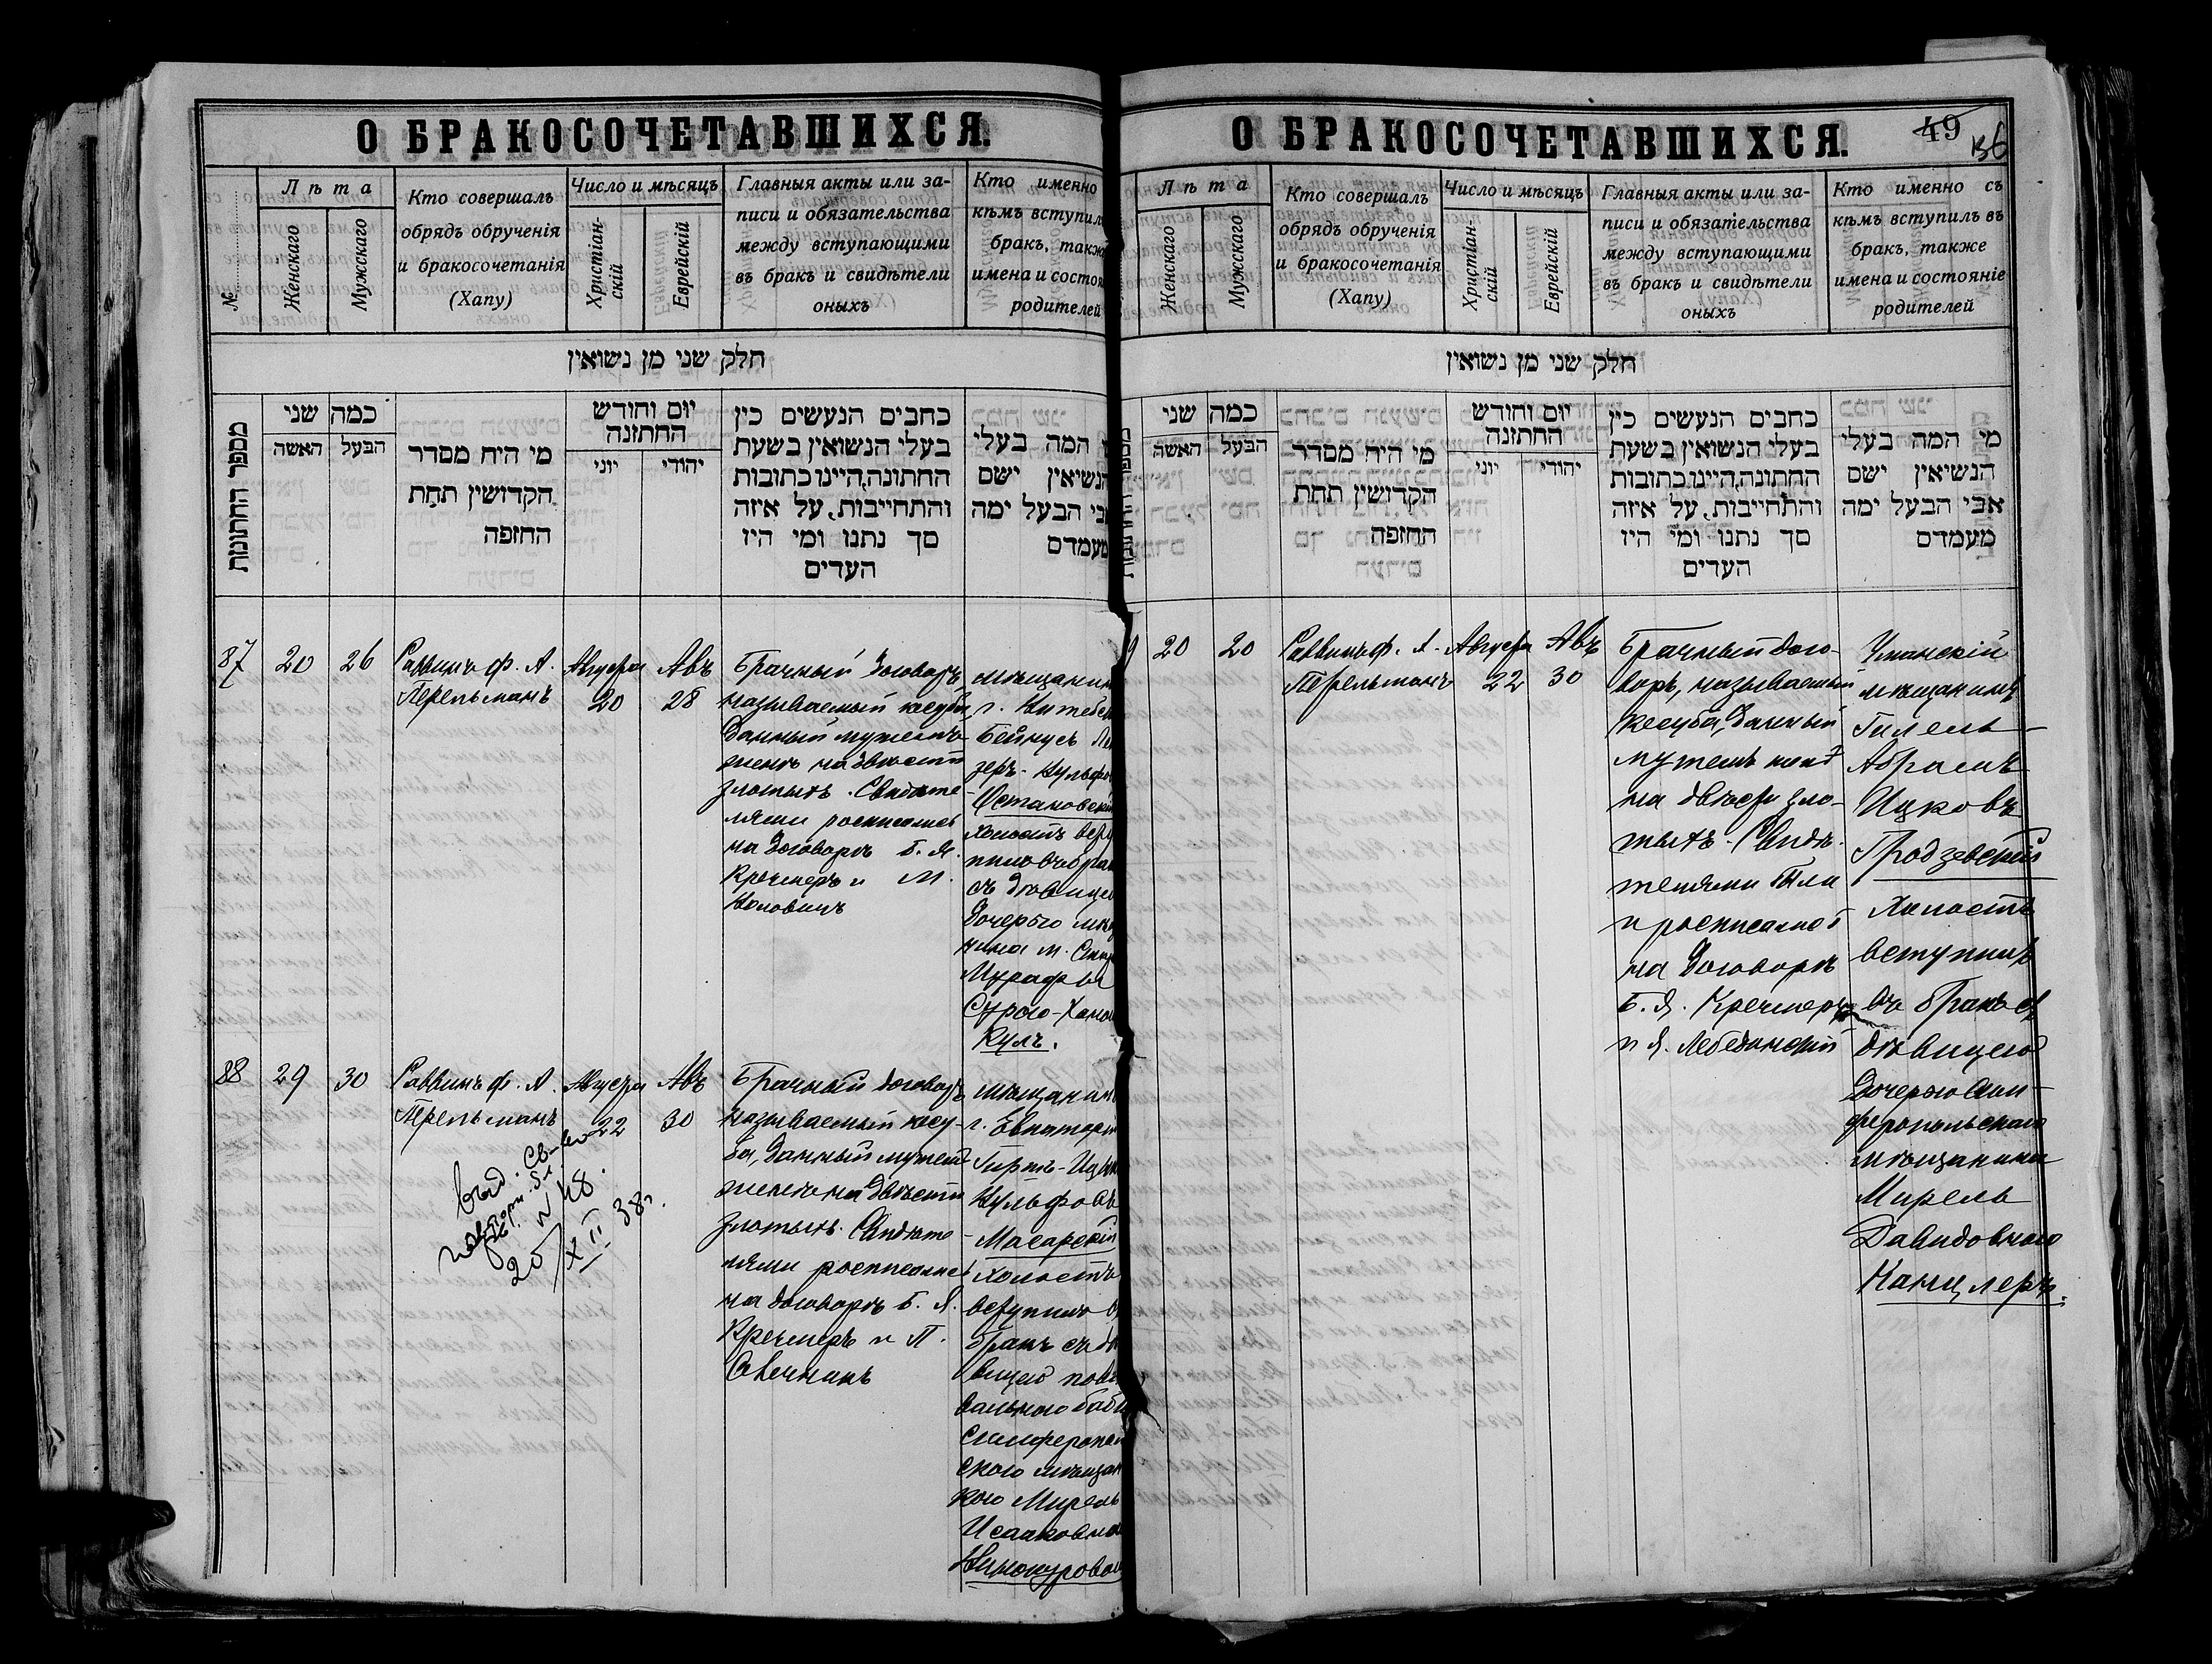 О БРАКОСОЧЕТАВШИХСЯ.
№
Лѣта
Женскаго
Мужскаго
Кто совершалъ
обрядъ обрученія
и бракосочетанія
(Хапу)
Число и мѣсяцъ
Христіан-
скій
Еврейскій
Главныя акты или за-
писи и обязательства
между вступающими
въ бракъ и свидѣтели
оныхъ
Кто именно
кѣмъ вступил
бракъ, также
имена и состоя
родителей
חלק שני מן נשואין
מספר החתונת
כמה שני
האשה
הבעל
מי היח מסדר
הקדושין תחת
החופה
יום וחודש
החתונה
יוני
יהודי
כחבים הנעשים כין
בעלי הנשואין בשעת
החתונה, היינו כתובות
והתחייבות, על איזה
סך נתנו ומי היו
העדים
המה בעלי
הנשיאין ישם
הבעל ימה
מעמדם
87
20
26
Раввинъ ф. А.
Перельманъ
Августа
20
Авъ
28
Брачный договоръ
называемый кесуба
данный мужемъ
женѣ на двѣсти
злотыхъ. Свидѣте
лями росписались
на договорѣ Б. Я.
Кречмеръ и М.
мѣщанин
г. Витебс
Бейнусъ Ле
зеръ-Вульфо
Остановскі
холостъ всту
пилъ въ брак
съ дѣвицею
дочерью мѣщ
нина м.
Мурафы
Сурою-Хано
Кулъ.
88
29
30
Раввинъ ф. А.
Перельманъ
Августа
22
Авъ
30
Брачный договоръ
называемый кесу-
ба, данный мужемъ
женѣ на двѣсти
злотыхъ. Свидѣте
лями росписались
на договорѣ Б. Я.
Кречмеръ и П.
Свечникъ
мѣщанин
г. Евпатор
Гиршъ-Ицы
Вульфовъ
Масарскій
Холостъ
вступилъ в
бракъ съ дѣ
вицею пови
вальною бабк
симферополь
скою мѣщан
кою Мирель
Исааковною
Винокуровой
выд. Св-во
повторн.
№ 48.
20/XII 38г.
О БРАКОСОЧЕТАВШИХСЯ.
49
136
Лѣта
Женскаго
Мужскаго
Кто совершалъ
обрядъ обрученія
и бракосочетанія
(Хапу)
Число и мѣсяцъ
Христіан-
скій
Еврейскій
Главныя акты или за-
писи и обязательства
между вступающими
въ бракъ и свидѣтели
оныхъ
Кто именно съ
кѣмъ вступилъ въ
бракъ, также
имена и состояніе
родителей
חלק שני מן נשואין
כמה שני
האשה
הבעל
מי היח מסדר
הקדושין תחת
החופה
יום וחודש
החתונה
יוני
יהודי
כחבים הנעשים כין
בעלי הנשואין בשעת
החתונה, היינו כתובות
והתחייבות, על איזה
סך נתנו ומי היו
העדים
מי המה בעלי
הנשיאין ישם
אבי הבעל ימה
מעמדם
9
20
20
Раввинъ ф. А.
Перельманъ
Августа
22
Авъ
30
Брачный дого-
воръ, называемый
кесуба, данный
мужемъ женѣ
на двѣсти зло-
тыхъ. Свидѣ-
телями были
и росписались
на договорѣ
Б. Я. Кречмеръ
и Я. Лебединскій
Уманскій
мѣщанинъ
Гилель-
Абрамъ
Ицковъ
Гродзевскій
Холостъ
вступилъ
въ бракъ съ
дѣвицею
дочерью Сим-
феропольскаго
мѣщанина
Мирель
Давидовною
Канцлеръ.